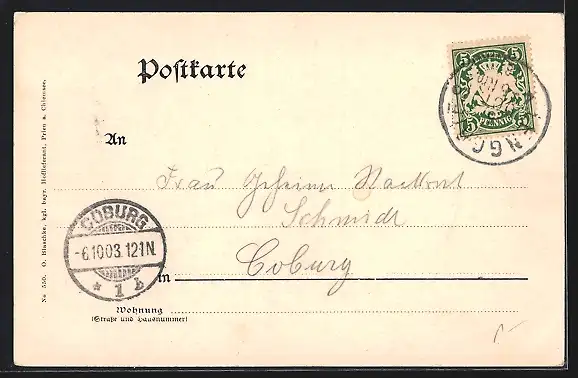 Postkarte
BAYERN
5 5
5 PFENNIG 5
An
Frau Geheime
Schmidt
Coburg
in
COBURG
-6.10.03.12-1N.
* 1 b
Wohnung
(Straße und Hausnummer)
No 550. O. Blaschke, kgl. bayr. Hoflieferant, Prien a. Chiemsee.